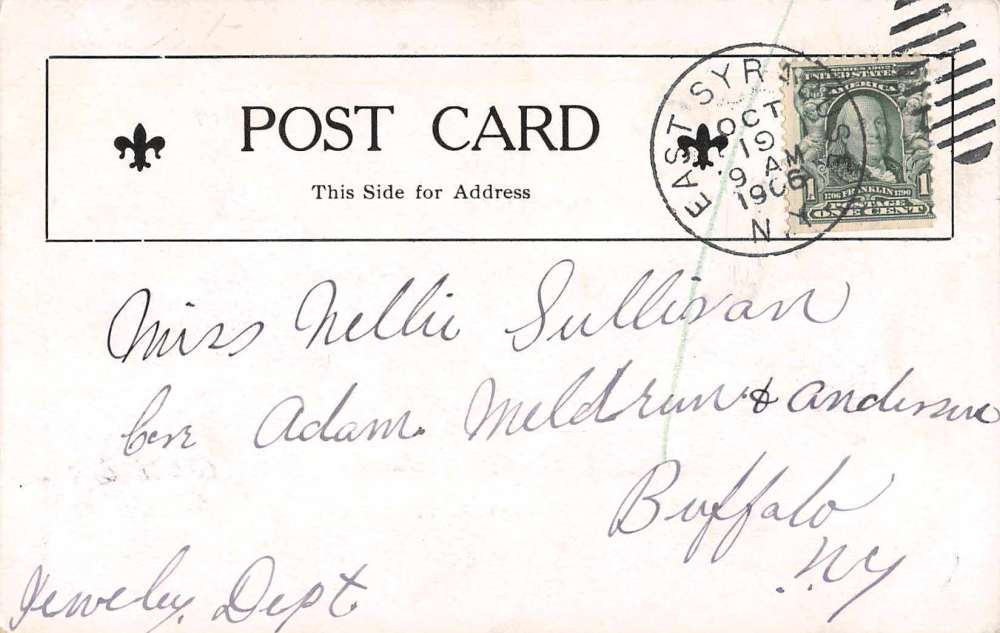 POST CARD
This Side for Address
EAST SYRACUSE N.Y.
OCT
19
9 AM
1906
SERIES 1902
UNITED STATES
AMERICA
1706 FRANKLIN 1790
1 POSTAGE 1
ONE CENT
Miss Nellie Sullivan
Care Adam. Meldrum & Anderson
Buffalo
NY
Jewelry Dept.